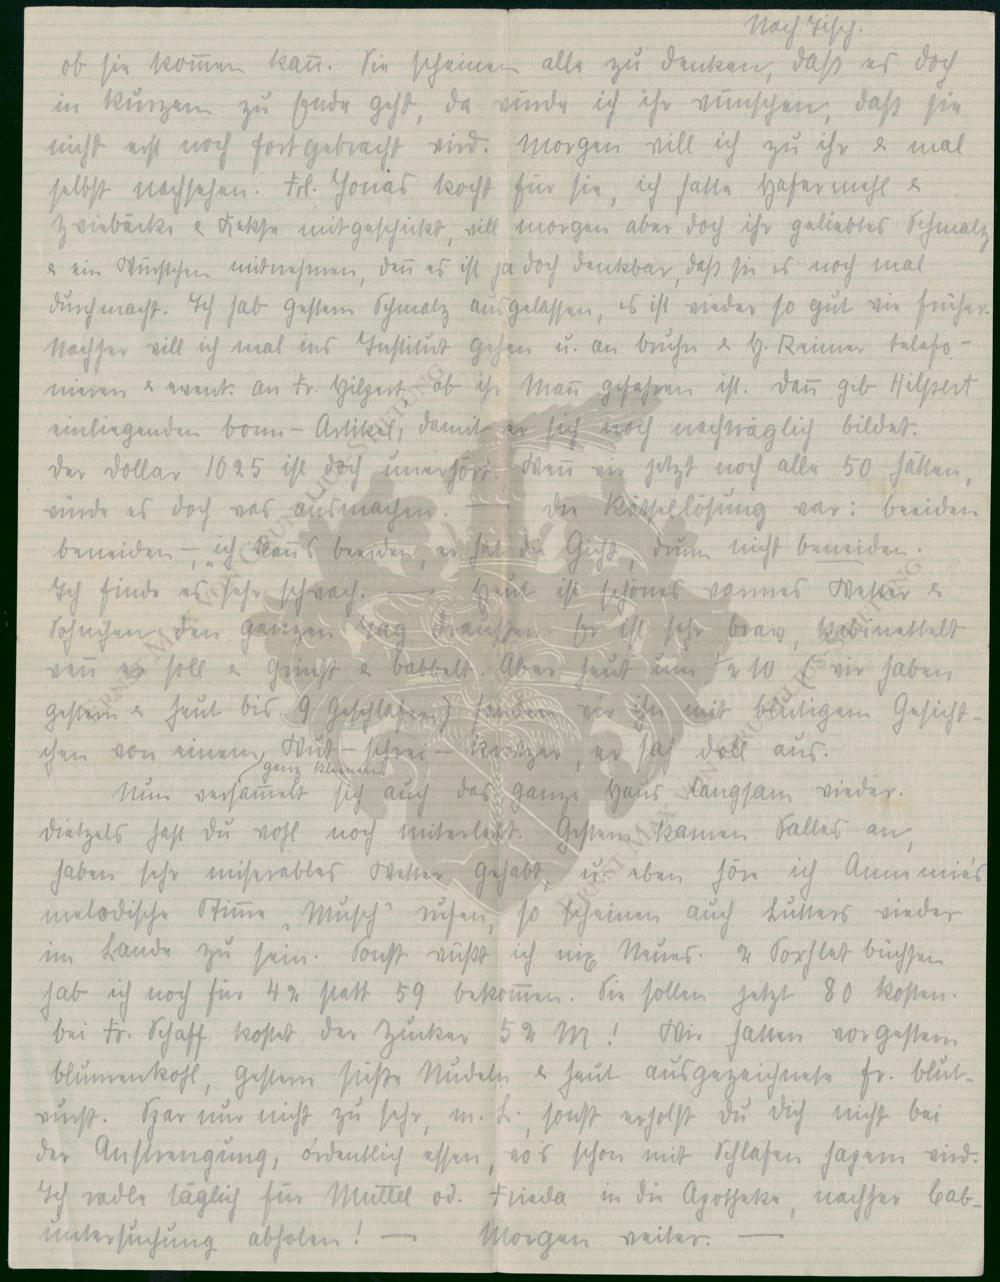 Nach Tisch.
ob sie kom̅en kan̅. Sie scheinen alle zu denken, daß es doch
in kurzem zu Ende geht, da würde ich ihr wünschen, daß sie
nicht erst noch fortgebracht wird. Morgen will ich zu ihr & mal
selbst nachsehen. Frl. Jonas kocht für sie, ich hatte Hafermehl &
Zwiebäcke & Kekse mitgeschickt, will morgen aber doch ihr geliebtes Schmalz
& ein Würstchen mitnehmen, den̅ es ist ja doch denkbar, daß sie es noch mal
durchmacht. Ich hab gestern Schmalz ausgelassen, es ist wieder so gut wie früher.
Nachher will ich mal ins Institut gehen u. an Bruhn & H. Reimer telefo-
nieren & event. an Fr. Hilpert, ob ihr Man̅ gefahren ist. Dan̅ gib Hilpert
einliegenden Artikel, damit er sich noch nachträglich bildet.
Der Dollar 1025 ist doch unerhört. Wen̅ wir jetzt noch alle 50 hätten,
würde es doch was ausmachen. — Die Rätsellösung war: beeiden
beneiden –, „ich kan̅s beeiden, er hat die Gicht, drum nicht beneiden.
Ich finde es sehr schwach. — Heut ist schönes warmes Wetter &
Söhnchen den ganzen Tag draussen. Er ist sehr brav, kabinettelt
wen̅ er soll & grinst & babbelt. Aber heut um ½ 10 (wir haben
gestern & heut bis 9 geschlafen) fanden wir ihn mit blutigem Gesicht-
chen von einem ganz kleinen Wut-schrei-Kratzer, er sah doll aus.
Nun versam̅elt sich auch das ganze Haus langsam wieder.
Dietzels hast Du wohl noch miterlebt. Gestern kamen Salles an,
haben sehr miserables Wetter gehabt, u. eben höre ich Annemie's
melodische Stim̅e „Musch" rufen, so scheinen auch Lutters wieder
im Lande zu sein. Sonst wüßt ich nix Neues. 2 Soxhlet büchsen
hab ich noch für 42 statt 59 bekom̅en. Sie sollen jetzt 80 kosten.
bei Fr. Schaff kostet der Zucker 52 M! Wir hatten vorgestern
Blumenkohl, gestern süße Nudeln & heut ausgezeichnete fr. Blut-
wurst. Spar nur nicht zu sehr, m. L., sonst erholst Du Dich nicht bei
der Anstrengung, ordentlich essen, wo's schon mit Schlafen hapern wird.
Ich radle täglich für Muttel od. Frieda in die Apotheke, nachher
untersuchung abholen! — Morgen weiter. —
ERNST MAX VON GRUNELIUS-STIFTUNG
ERNST MAX VON GRUNELIUS-STIFTUNG